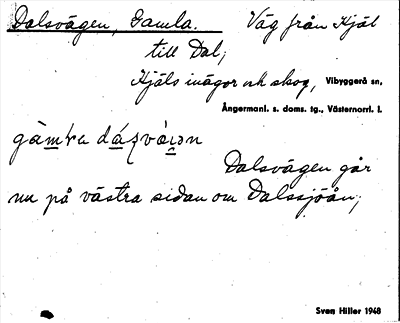 Dalsvägen, Gamla. Väg från Kjäl
till Dal;
Kjäls inägor och skog, Vibyggerå sn,
Ångermanl. s. doms. tg., Västernorrl. l.
Dalsvägen går
nu på västra sidan om Dalssjöån;
Sven Hiller 1948